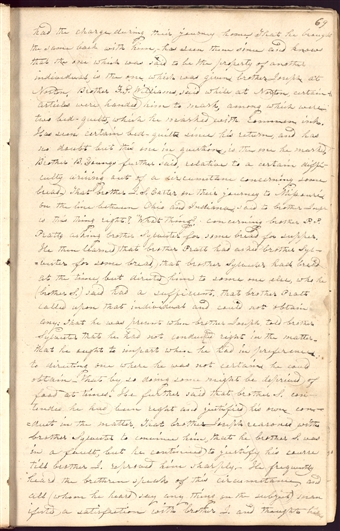 69
had the charge during their journey home, & that he brought
the same back with him, has seen them since and knows
that the one which was said to be the property of another
individual is the one which was given brother Joseph at
Norton. Brother F. G. Williams said while at Norton certain
articles were handed him to mark, among which were
two bed-quilts, which he marked with common ink.
Has seen certain bed-quilts since his return, and has
no doubt but this one in question is the one he marked.
Brother B. Young further said, relative to a certain diffi-
culty arising out of a circumstance concerning some
bread. That brother J. S. Carter on their journey to Missouri
on the line between Ohio and Indiana said to brother Joseph
is this thing right? What thing? concerning brother P. P.
Pratt's asking brother Sylvester for some bread for supper.
He then learned that brother Pratt had asked brother Syl-
vester for some bread, that brother Sylvester had bread
at the time, but directed him to some one else, who he
(brother S.) said had a sufficient, that brother Pratt
called upon that individual and could not obtain
any, that he was present when brother Joseph told brother
Sylvester that he had not conducted right in the matter.
that he ought to impart when he had in preference
to directing one where he was not certain he could
obtain. That by so doing some might be deprived of
food at times. He further said that brother S. con-
tended he had been right and justified his own con-
duct in the matter. That brother Joseph reasoned with
brother Sylvester to convince him, that he brother S. was
in a fault, but he continued to justify his course
till brother J. reproved him sharply. He frequently
heard the brethren speak of this circumstance, and
all (whom he heard) say any thing on the subject mani-
fested a satisfaction with brother J. and thought he